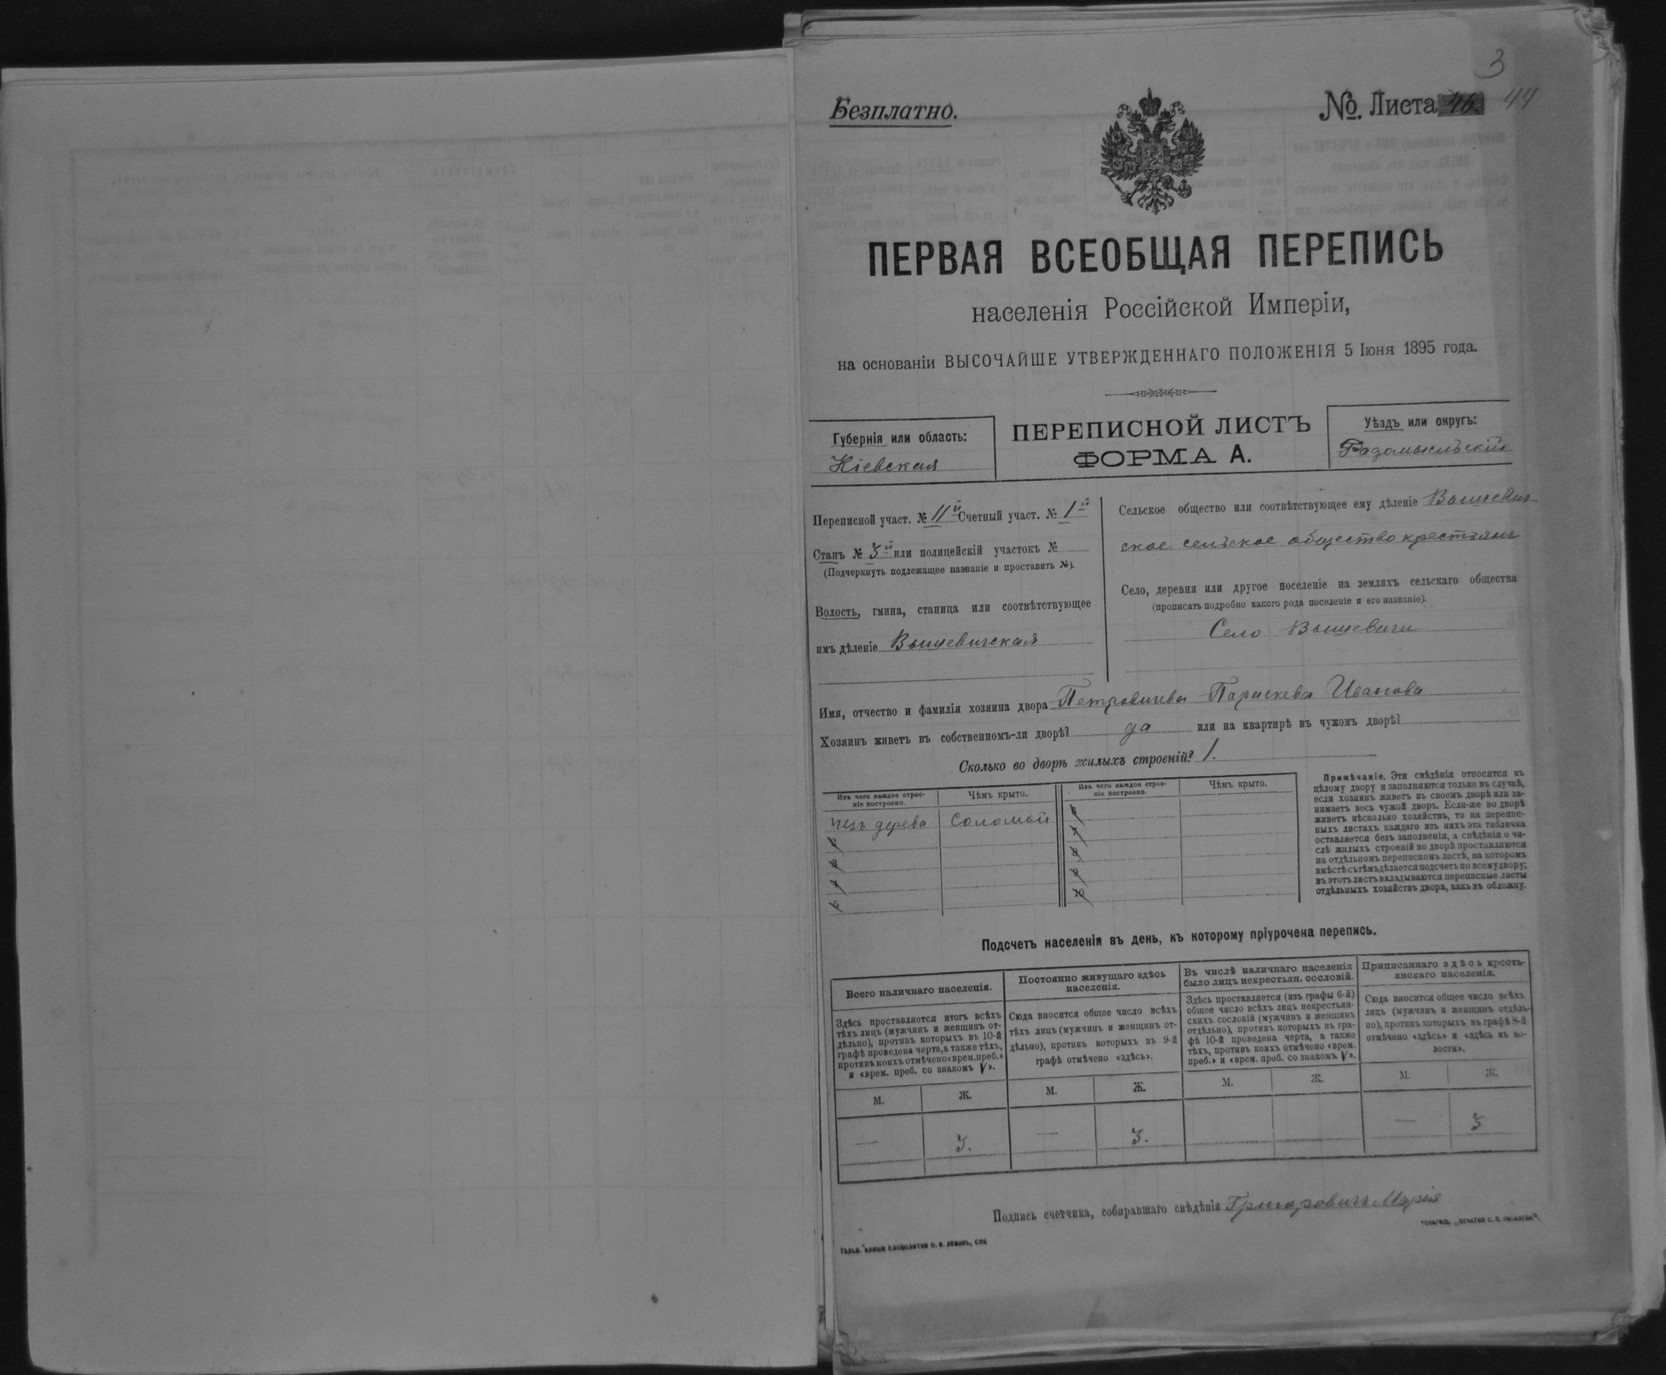 3
Безплатно.
№. Листа 46 44
ПЕРВАЯ ВСЕОБЩАЯ ПЕРЕПИСЬ
населенія Россійской Имперіи,
на основаніи ВЫСОЧАЙШЕ УТВЕРЖДЕННАГО ПОЛОЖЕНІЯ 5 Іюня 1895 года.
Губернія или область:
Кіевская
ПЕРЕПИСНОЙ ЛИСТЪ
ФОРМА А.
Уѣздъ или округъ:
Радомысльскій
Переписной участ. № 11й Счетный участ. № 1й
Станъ № 3й или полицейскій участокъ №
(Подчеркнуть подлежащее названіе и проставить №).
Волость, гмина, станица или соотвѣтствующее
имъ дѣленіе Вышевичская
Сельское общество или соотвѣтствующее ему дѣленіе Вышевич-
ское сельское общество крестьянъ
Село, деревня или другое поселеніе на земляхъ сельскаго общества
(прописать подробно какого рода поселеніе и его названіе).
Село Вышевичи
Имя, отчество и фамилія хозяина двора Петровичева Параскева Иванова
Хозяинъ живетъ въ собственномъ-ли дворѣ? да или на квартирѣ въ чужомъ дворѣ?
Сколько во дворѣ жилыхъ строеній? 1.
Изъ чего каждое строе-
ніе построено.
Чѣмъ крыто.
Изъ чего каждое строе-
ніе построено.
Чѣмъ крыто.
изъ дерева соломой
2
3
4
5
6
7
8
9
10
Примѣчаніе. Эти свѣдѣнія относятся къ
цѣлому двору и заполняются только въ случаѣ,
если хозяинъ живетъ въ своемъ дворѣ или за-
нимаетъ весь чужой дворъ. Если-же во дворѣ
живетъ нѣсколько хозяйствъ, то на перепис-
ныхъ листахъ каждаго изъ нихъ эта табличка
оставляется безъ заполненія, а свѣдѣнія о чи-
слѣ жилыхъ строеній во дворѣ проставляются
на отдѣльномъ переписномъ листѣ, на которомъ
вмѣстѣ съ тѣмъ дѣлается подсчетъ по всему двору;
въ этотъ листъ вкладываются переписные листы
отдѣльныхъ хозяйствъ двора, какъ въ обложку.
Подсчетъ населенія въ день, къ которому пріурочена перепись.
Всего наличнаго населенія.
Постоянно живущаго здѣсь
населенія.
Въ числѣ наличнаго населенія
было лицъ некрестьян. сословій.
Приписаннаго здѣсь кресть-
янскаго населенія.
Здѣсь проставляется итогъ всѣхъ
тѣхъ лицъ (мужчинъ и женщинъ от-
дѣльно), противъ которыхъ въ 10-й
графѣ проведена черта, а также тѣхъ,
противъ коихъ отмѣчено «врем. преб.»
и «врем. преб. со знакомъ V».
Сюда вносится общее число всѣхъ
тѣхъ лицъ (мужчинъ и женщинъ от-
дѣльно), противъ которыхъ въ 9-й
графѣ отмѣчено «здѣсь».
Здѣсь проставляется (изъ графы 6-й)
общее число всѣхъ лицъ некрестьян-
скихъ сословій (мужчинъ и женщинъ
отдѣльно), противъ которыхъ въ гра-
фѣ 10-й проведена черта, а также
тѣхъ, противъ коихъ отмѣчено «врем.
преб.» и «врем. преб. со знакомъ V».
Сюда вносится общее число всѣхъ
лицъ (мужчинъ и женщинъ отдѣль-
но), противъ которыхъ въ графѣ 8-й
отмѣчено «здѣсь» и «здѣсь въ во-
лости».
М. Ж. М. Ж. М. Ж. М. Ж.
— 3. — 3. — 3
Подпись счетчика, собиравшаго свѣдѣнія Григоровичъ Марія